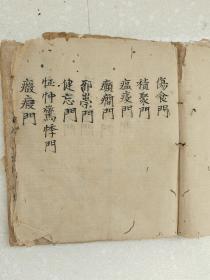 傷食門
積聚門
瘟疫門
癲癇門
邪祟門
健忘門
怔忡驚悸門
癥瘕門